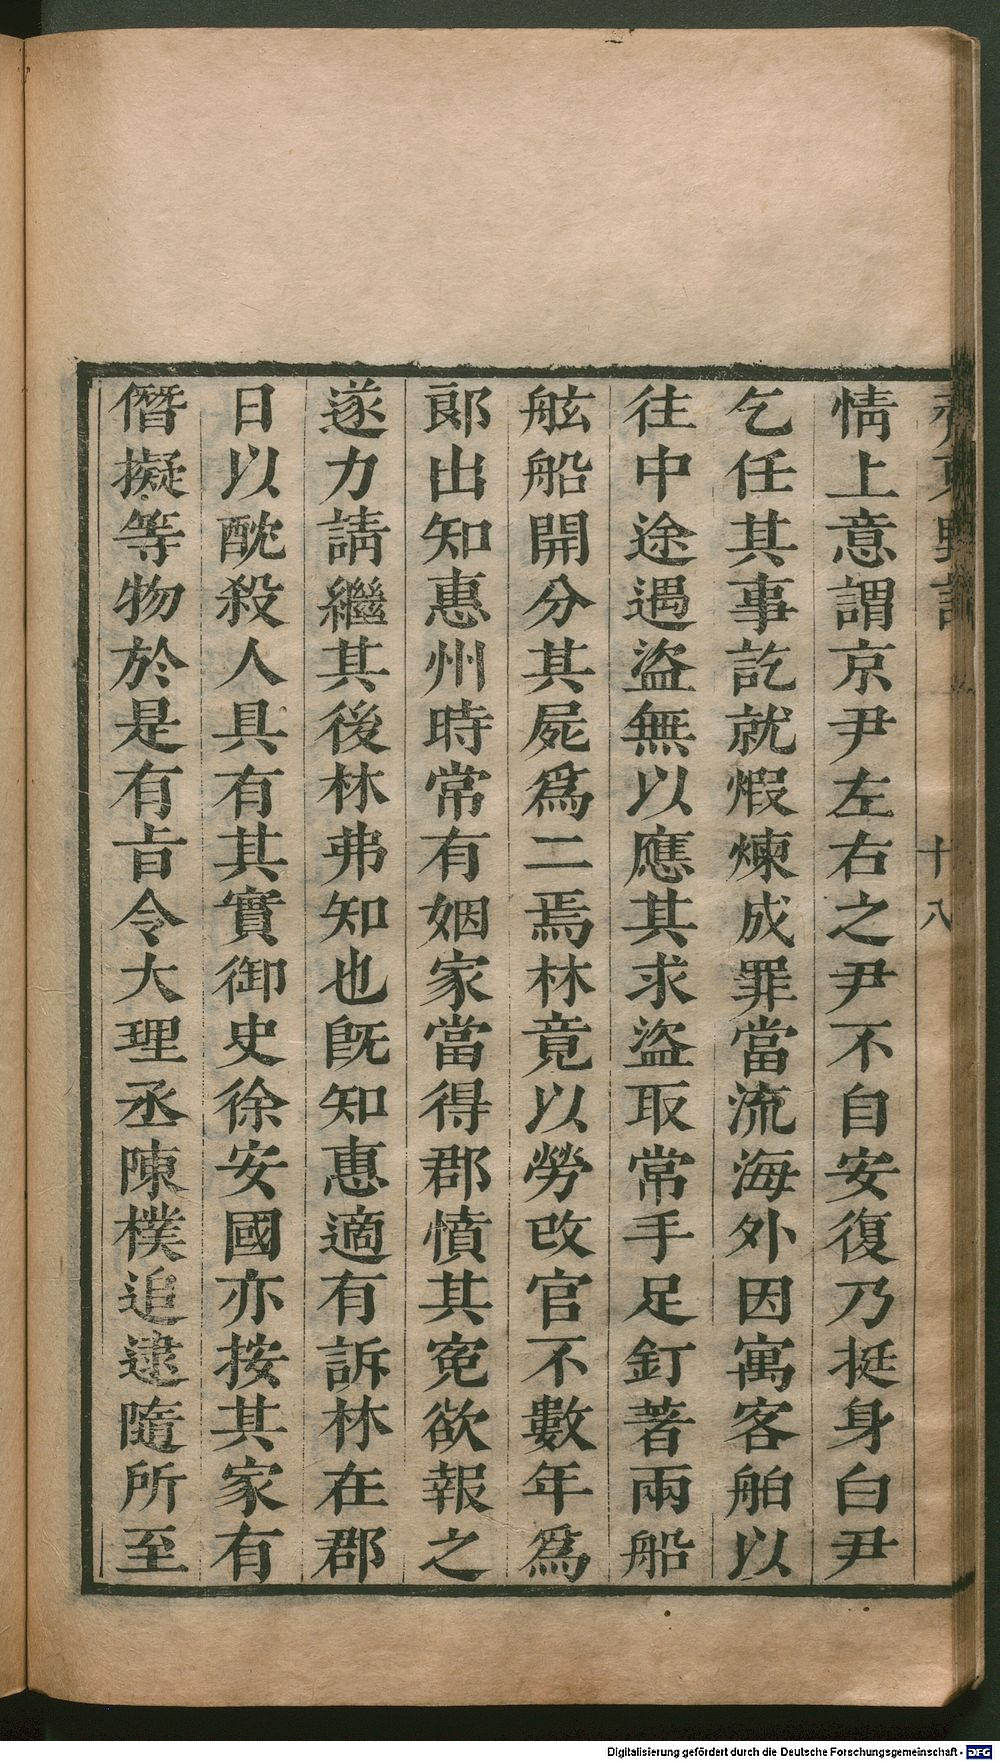 齊東野語
十八
情上意謂京尹左右之尹不自安復乃挺身白尹
乞任其事訖就煆煉成罪當流海外因寓客舶以
往中途遇盜無以應其求盜取常手足釘著兩船
舷船開分其屍爲二焉林竟以勞改官不數年爲
郎出知惠州時常有姻家當得郡憤其寃欲報之
遂力請繼其後林弗知也旣知惠適有訴林在郡
日以酖殺人具有其實御史徐安國亦按其家有
僭擬等物於是有旨令大理丞陳樸追逮隨所至
Digitalisierung gefördert durch die Deutsche Forschungsgemeinschaft - DFG